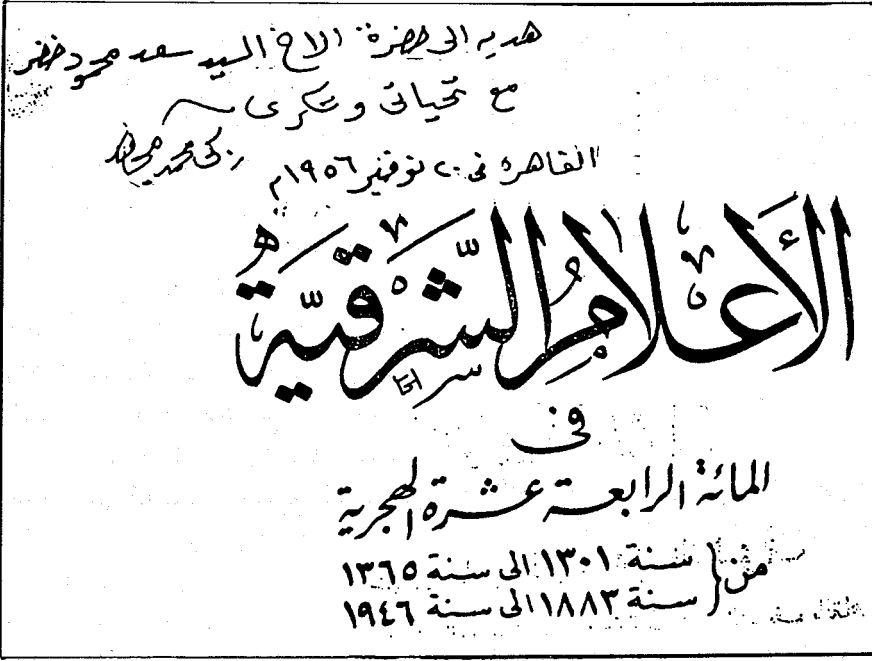 هديه الى حضرة الاخ السيد سعد محمود خضر
مع تحياتى وشكرى
زكى محمد مجاهد
القاهرة فى ٢٠ نوفمبر ١٩٥٦م
الأَعْلامُ الشَّرْقيَّةُ
فى
المائة الرابعة عشرة الهجرية
من { سنة ١٣٠١ الى سنة ١٣٦٥
سنة ١٨٨٣ الى سنة ١٩٤٦